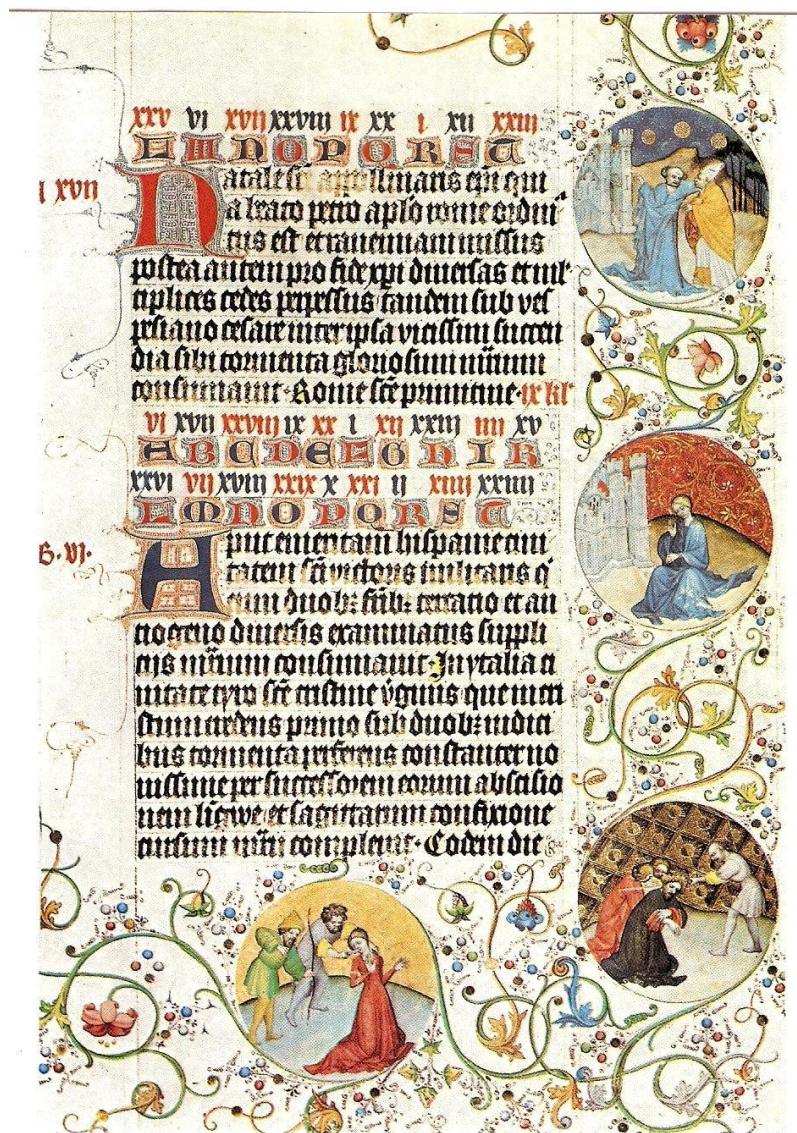 xxv vi xvii xxviii ix xx i xii xxiii
M N O P Q R S T
i xvii
Natale sci appollinaris epi qui
a beato petro aplo rome ordin
tus est et rauennam missus
postea autem pro fide xpi diuersas et mul
tiplices cedes perpessus tandem sub ves
pesiano cesare inter ipsa vicissim succen
dia sibi tormenta gloriosum mrium
consumauit. Rome sce primitiue. ix kl
vi xvii xxviii ix xx i xii xxiii iiii xv
A B C D E F G H I K
xxvi vii xviii xxix x xxi ii xiiii xxiiii
L M N O P Q R S T
G. vi.
Aput emeritam hispanie ciui
tatem sci victoris militaris q
cum duob; frib; et an
tiogeno diuersis examinatus suppli
cijs mrium consumauit. In ytalia ci
uitate tyro sce cristine vginis que in cri
stum credens primo sub duob; iudici
bus tormenta perferens constanter no
uissime per successorem eorum abscisio
nem ligwe et sagittarum confixione
cursum mrii compleuit. Eodem die